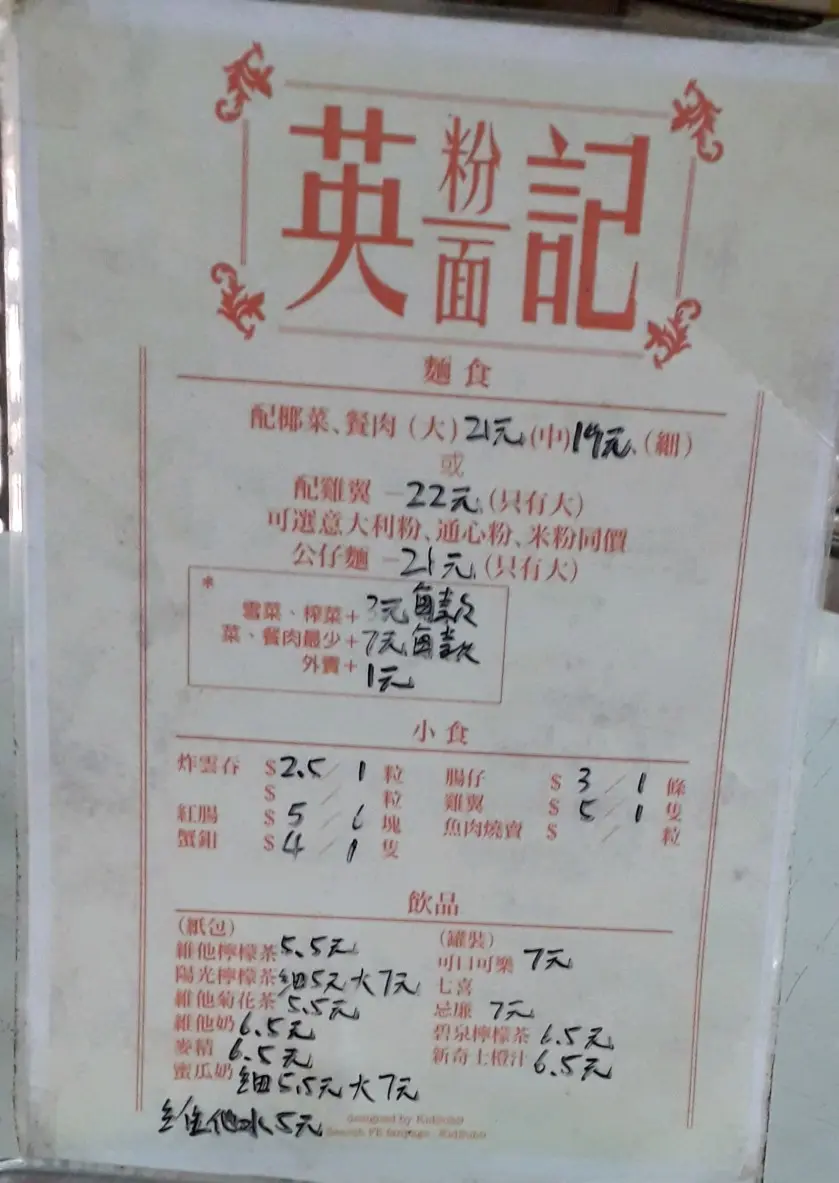 英粉面記
麵食
配椰菜、餐肉（大）21元（中）19元（細）
或
配雞翼 - 22元（只有大）
可選意大利粉、通心粉、米粉同價
公仔麵 - 21元（只有大）
*
雪菜、榨菜 + 3元每款
菜、餐肉最少 + 7元每款
外賣 + 1元
小食
炸雲吞 $ 2.5 / 1 粒 腸仔 $ 3 / 1 條
$ / 粒 雞翼 $ 5 / 1 隻
紅腸 $ 5 / 6 塊 魚肉燒賣 $ / 粒
蟹鉗 $ 4 / 1 隻
飲品
（紙包）
維他檸檬茶 5.5元
陽光檸檬茶 細5元大7元
維他菊花茶 5.5元
維他奶 6.5元
麥精 6.5元
蜜瓜奶 細5.5元大7元
維他水5元
（罐裝）
可口可樂 7元
七喜
忌廉 7元
碧泉檸檬茶 6.5元
新奇士橙汁 6.5元
designed by
Search FB fanpage